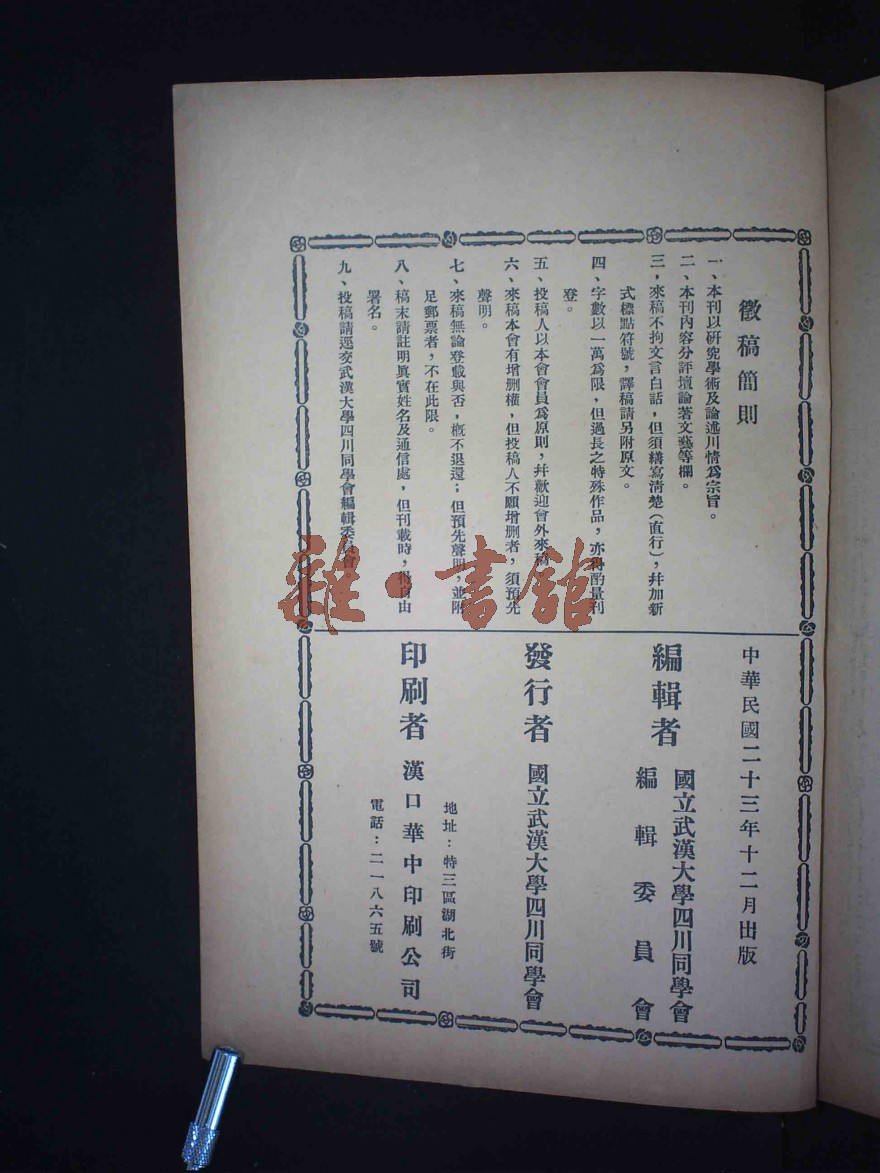 徵稿簡則
一、本刊以硏究學術及論述川情爲宗旨。
二、本刊內容分評壇論著文藝等欄。
三，來稿不拘文言白話，但須繕寫淸楚（直行），幷加新
式標點符號，譯稿請另附原文。
四、字數以一萬爲限，但過長之特殊作品，亦得酌量刊
登。
五、投稿人以本會會員爲原則，幷歡迎會外來稿
六、來稿本會有增删權，但投稿人不願增删者，須預先
聲明。
七、來稿無論登載與否，槪不退還；但預先聲明，並附
足郵票者，不在此限。
八、稿末請註明眞實姓名及通信處，但刊載時，得自由
署名。
九、投稿請逕交武漢大學四川同學會編輯委員會
中華民國二十三年十二月出版
編輯者 國立武漢大學四川同學會
編輯委員會
發行者 國立武漢大學四川同學會
地址：特三區湖北街
印刷者 漢口華中印刷公司
電話：二一八六五號
雜·書館